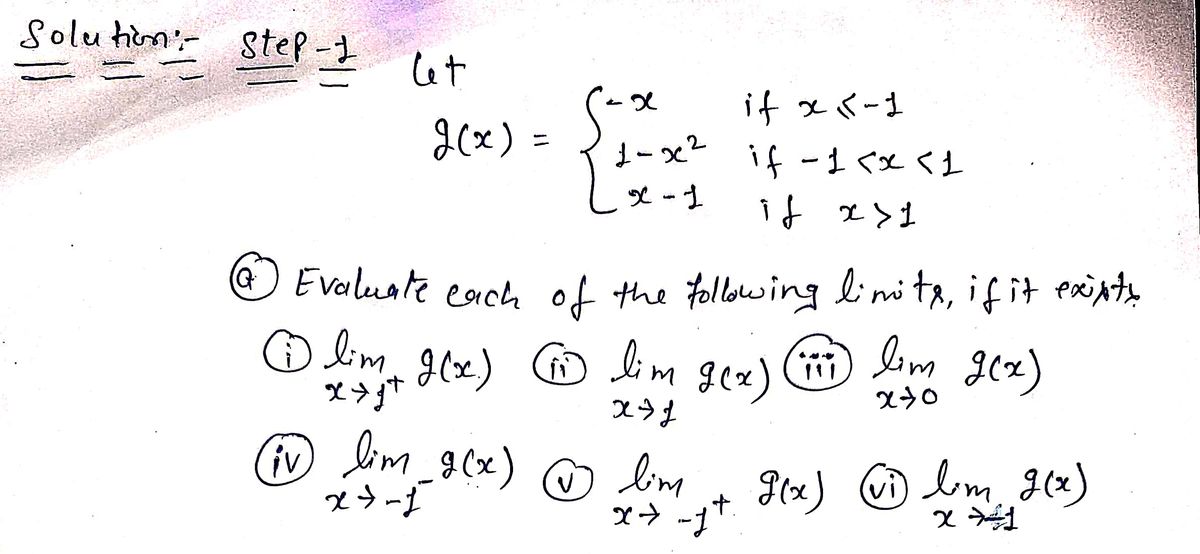 Solution:- Step-1 Let
g(x) = { -x if x ≤ -1
1-x² if -1 < x < 1
x-1 if x > 1
(a) Evaluate each of the following limits, if it exists
(i) lim x→1⁺ g(x) (ii) lim x→1 g(x) (iii) lim x→0 g(x)
(iv) lim x→-1⁻ g(x) (v) lim x→-1⁺ g(x) (vi) lim x→-1 g(x)